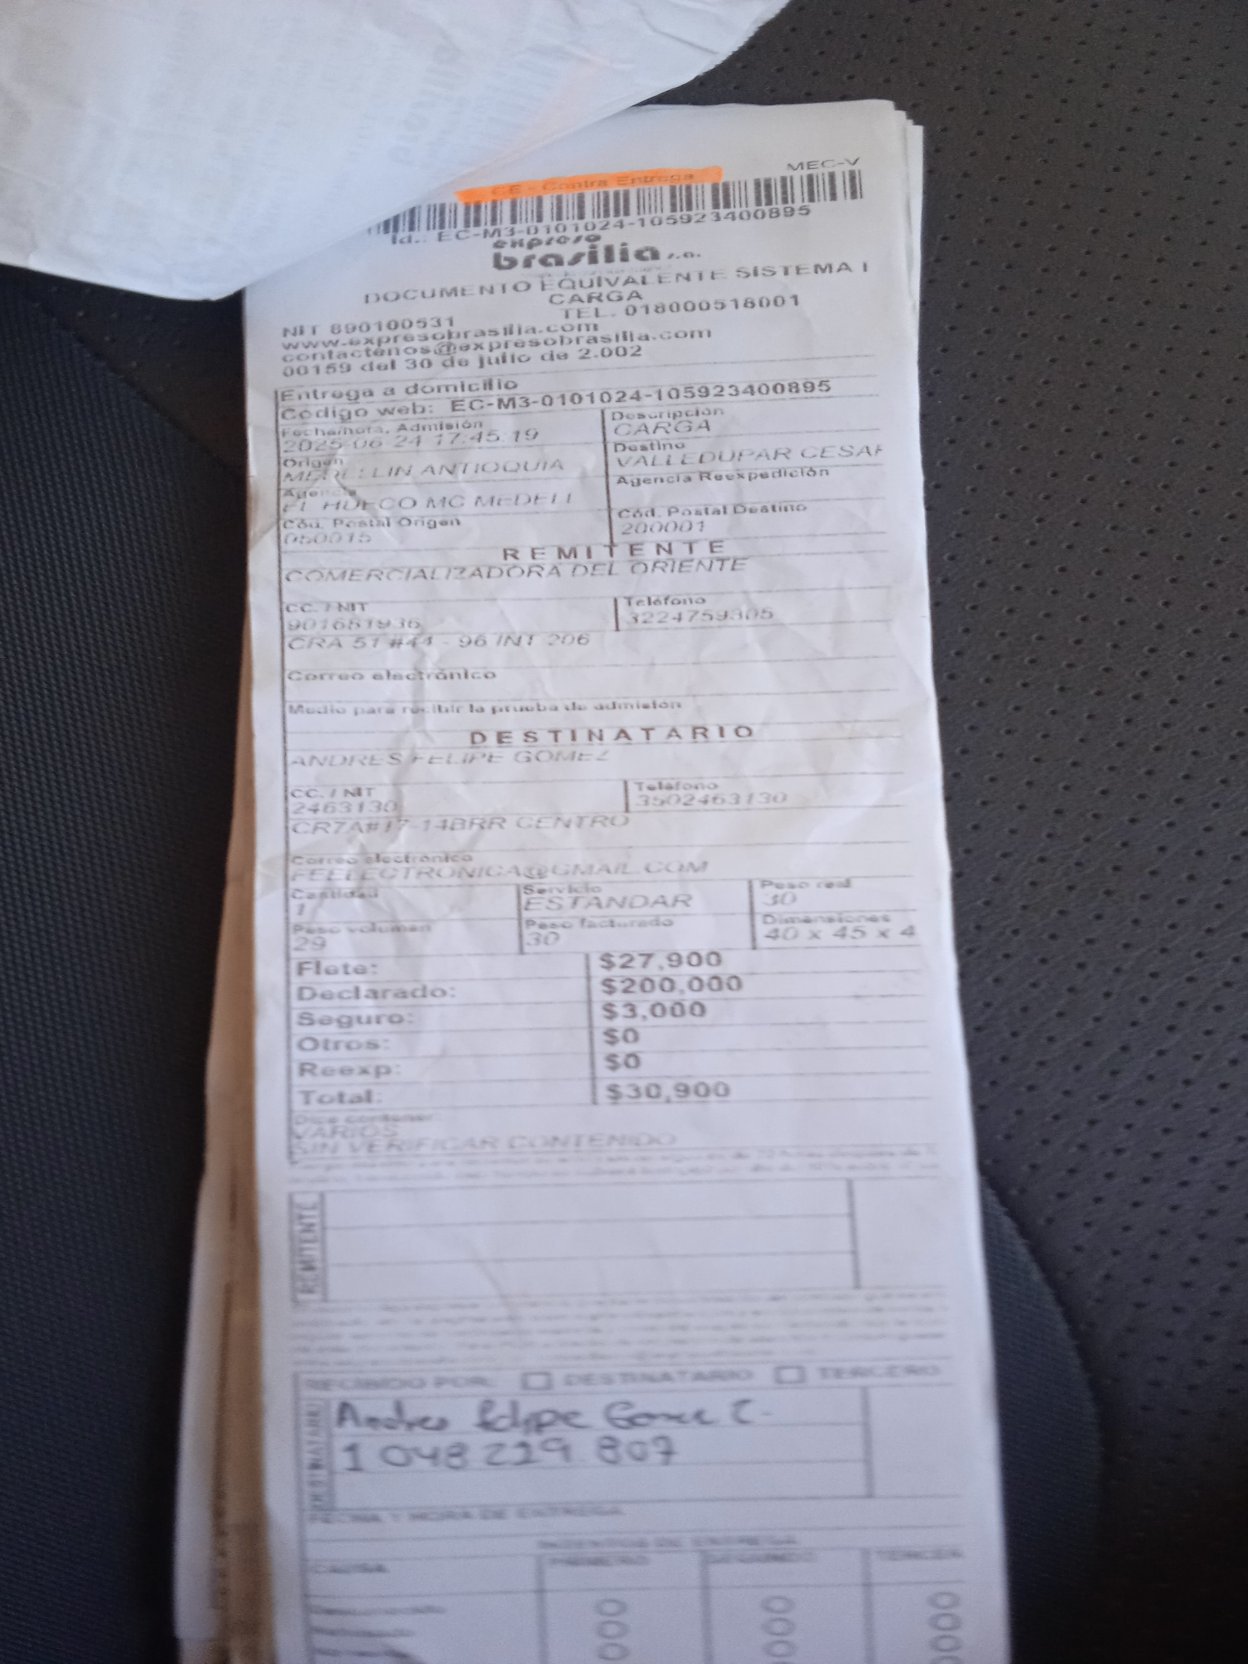 MEC-V
CE - Contra Entrega
Id.: EC-M3-0101024-105923400895
expreso
brasilia s.a.
DOCUMENTO EQUIVALENTE SISTEMA I
CARGA
NIT 890100531 TEL. 018000518001
www.expresobrasilia.com
contactenos@expresobrasilia.com
00159 del 30 de julio de 2.002
Entrega a domicilio
Código web: EC-M3-0101024-105923400895
Fecha/hora. Admisión Descripción
2025-06-24 17:45:19 CARGA
Origen Destino
MEDELLIN ANTIOQUIA VALLEDUPAR CESAR
Agencia Agencia Reexpedición
EL HUECO MC MEDELL
Cód. Postal Origen Cód. Postal Destino
050015 200001
REMITENTE
COMERCIALIZADORA DEL ORIENTE
CC. / NIT Teléfono
901681936 3224759305
CRA 51 #44 - 96 INT 206
Correo electrónico
Medio para recibir la prueba de admisión
DESTINATARIO
ANDRES FELIPE GOMEZ
CC. / NIT Teléfono
2463130 3502463130
CR7A#17-14BRR CENTRO
Correo electrónico
FELECTRONICA@GMAIL.COM
Cantidad Servicio Peso real
1 ESTANDAR 30
Peso volumen Peso facturado Dimensiones
29 30 40 x 45 x 4
Flete: $27,900
Declarado: $200,000
Seguro: $3,000
Otros: $0
Reexp: $0
Total: $30,900
Dice contener
VARIOS
SIN VERIFICAR CONTENIDO
REMITENTE
RECIBIDO POR: DESTINATARIO TERCERO
DESTINATARIO
Andres Felipe Gomez C.
1 048 229 807
FECHA Y HORA DE ENTREGA
INTENTOS DE ENTREGA
CAUSA PRIMERO SEGUNDO TERCER